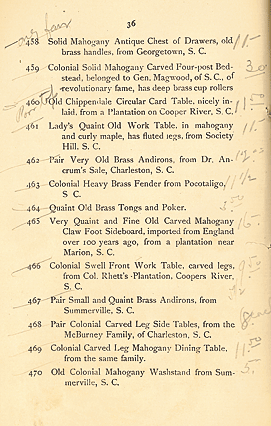 36
458 Solid Mahogany Antique Chest of Drawers, old
brass handles, from Georgetown, S. C.
459 Colonial Solid Mahogany Carved Four-post Bed-
stead, belonged to Gen. Magwood, of S. C., of
revolutionary fame, has deep brass cup rollers
460 Old Chippendale Circular Card Table, nicely in-
laid, from a Plantation on Cooper River, S. C.
461 Lady's Quaint Old Work Table, in mahogany
and curly maple, has fluted legs, from Society
Hill, S. C.
462 Pair Very Old Brass Andirons, from Dr. An-
crum's Sale, Charleston, S. C.
463 Colonial Heavy Brass Fender from Pocotaligo,
S. C.
464 Quaint Old Brass Tongs and Poker.
465 Very Quaint and Fine Old Carved Mahogany
Claw Foot Sideboard, imported from England
over 100 years ago, from a plantation near
Marion, S. C.
466 Colonial Swell Front Work Table, carved legs,
from Col. Rhett's Plantation, Coopers River,
S. C.
467 Pair Small and Quaint Brass Andirons, from
Summerville, S. C.
468 Pair Colonial Carved Leg Side Tables, from the
McBurney Family, of Charleston, S. C.
469 Colonial Carved Leg Mahogany Dining Table,
from the same family.
470 Old Colonial Mahogany Washstand from Sum-
merville, S. C.